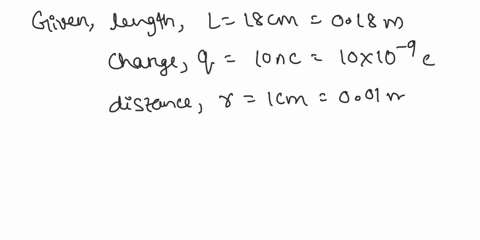 Given, length, L = 18cm = 0.18m
Change, q = 10nc = 10×10⁻⁹ c
distance, r = 1cm = 0.01m